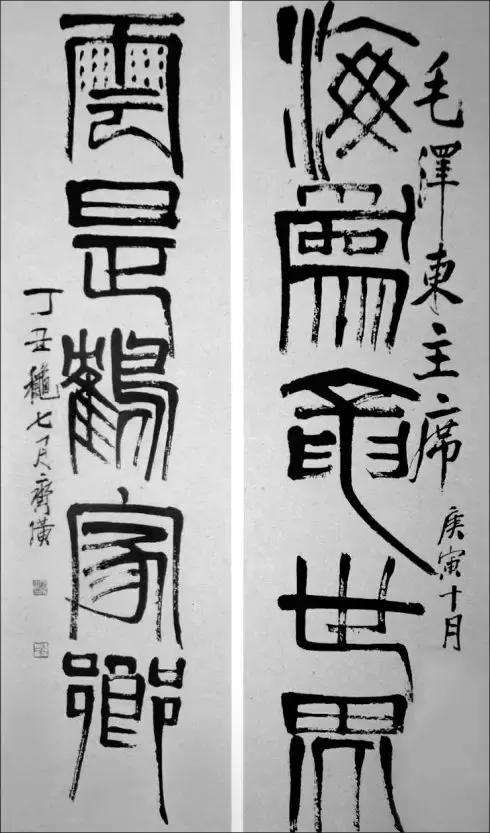 海為龍世界
毛澤東主席
庚寅十月
雲是鶴家鄉
丁丑龝七月齊璜